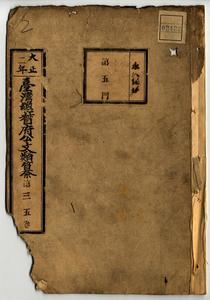 永久保存
第五門
大正二年
臺灣總督府公文類纂
第三五巻